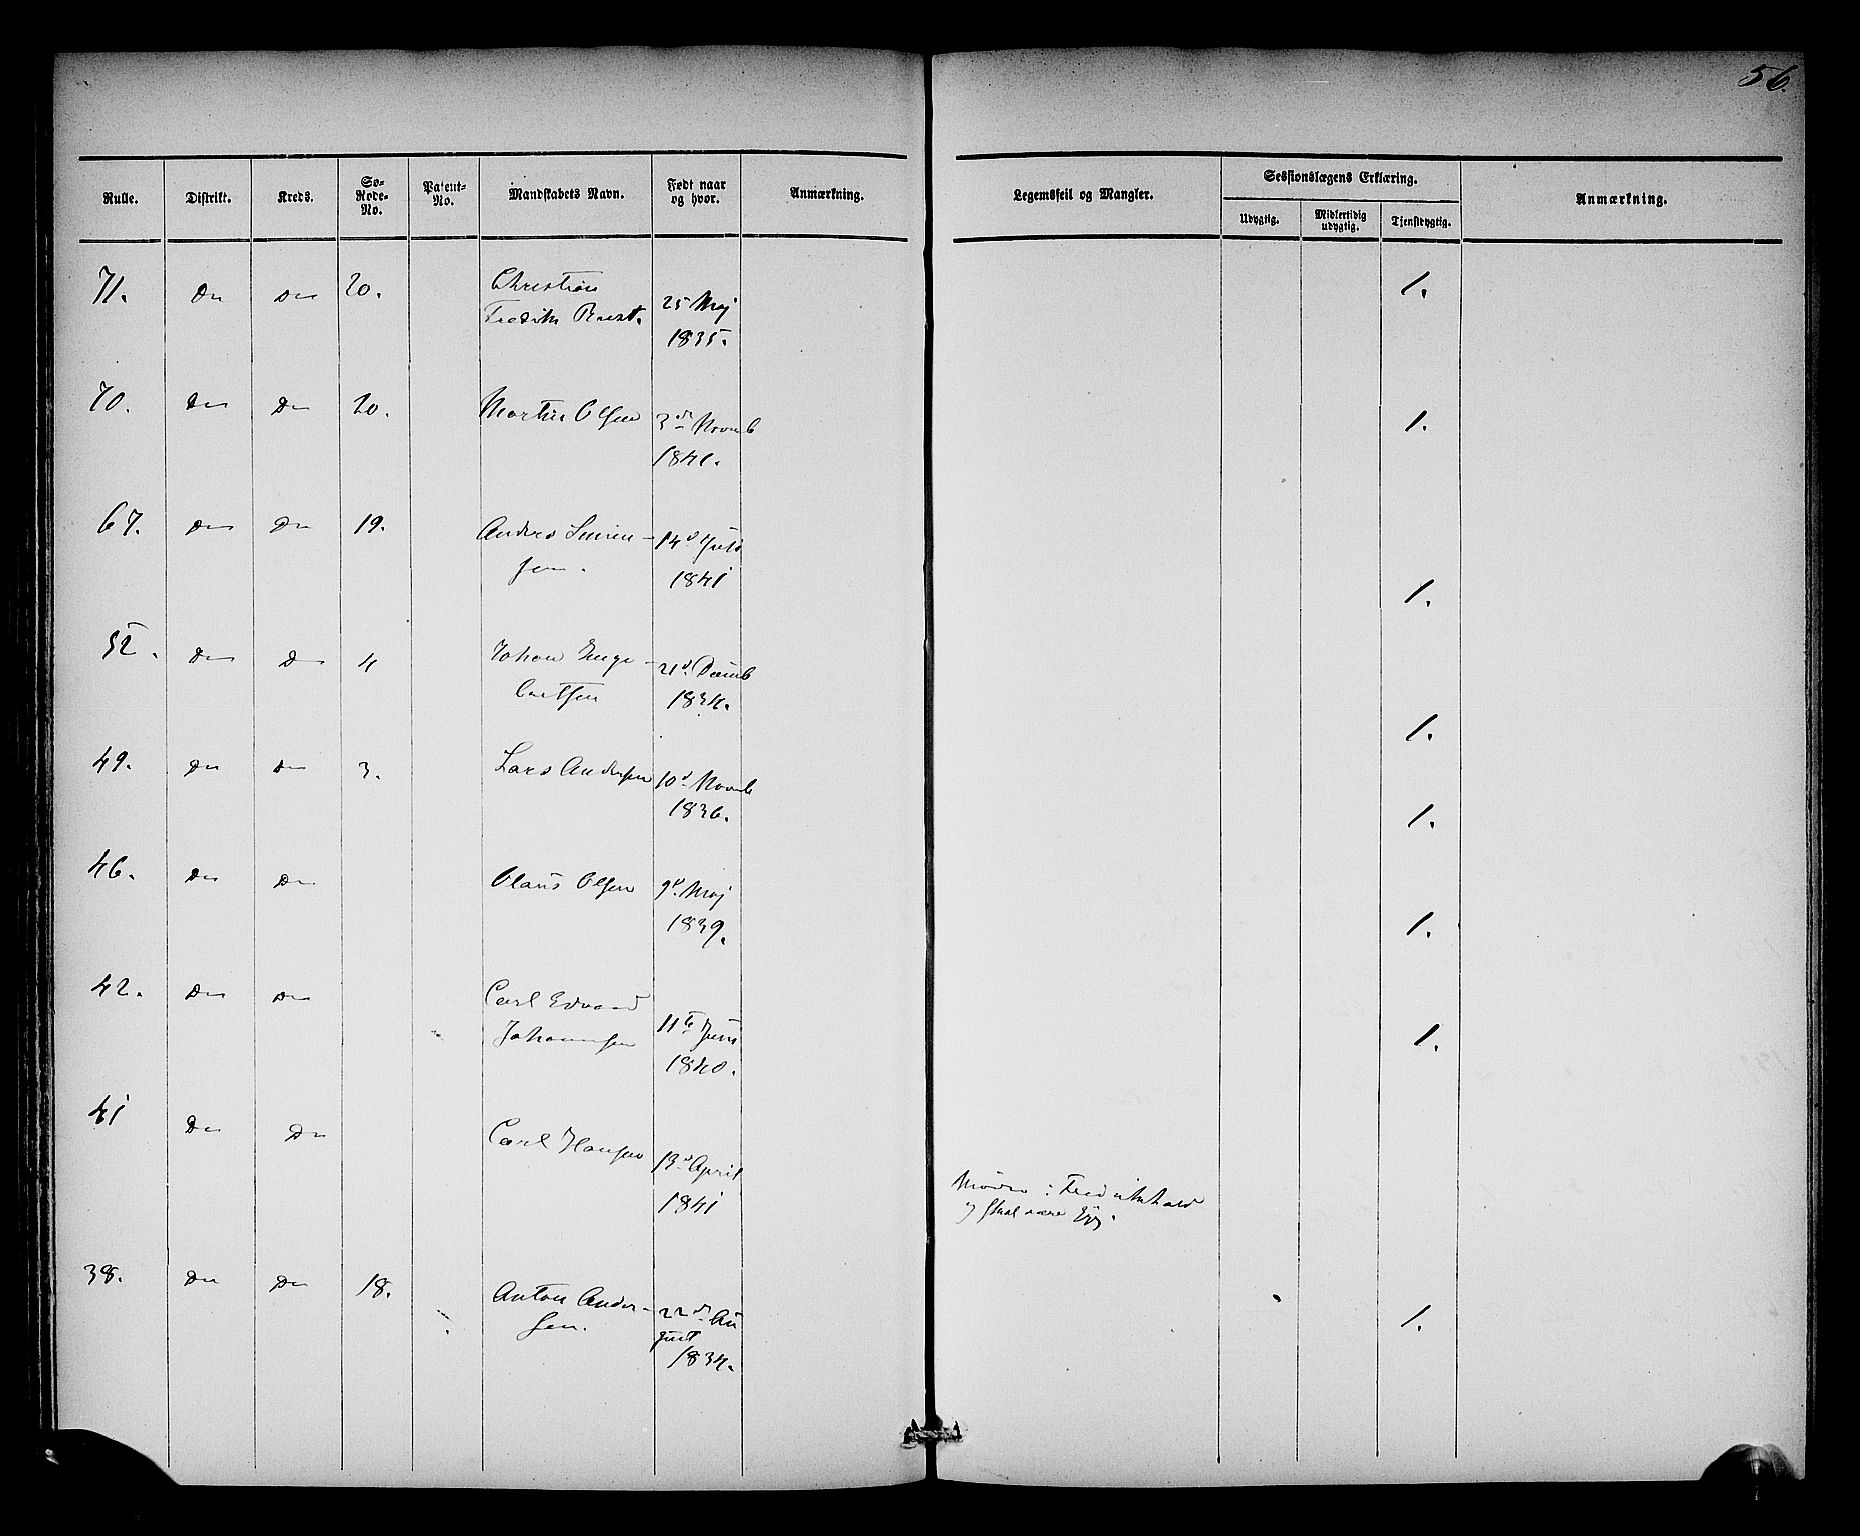 56.
Rulle. Distrikt. Kreds. Sø-Rode-No. Patent-No. Mandskabets Navn. Født naar og hvor. Anmærkning. Legemsfeil og Mangler. Sessionslægens Erklæring. Anmærkning.
Udygtig. Midlertidig udygtig. Tjenstdygtig.
71. Do Do 20. Christian 25 Maj 1.
Fredrik 1835.
70. Do Do 20. Martin Olsen 3d Novmb 1.
1841.
67. Do Do 19. Anders 14d 1841 1.
sen.
52. Do Do 4 Johan Enge- 21d Decmb 1.
bretsen 1834.
49. Do Do 3. Lars Andersen 10d Novmb 1.
1836.
46. Do Do Olaus Olsen 9d. Maj 1.
1839.
42. Do Do Carl Edvard 11te Juni 1.
Johannsen 1840.
41 Do Do Carl Hansen 13d April
1841
Møder i Fredrikshald
og skal være
38. Do Do 18. Anton Ander- 22de Au 1.
sen. gust
1834.